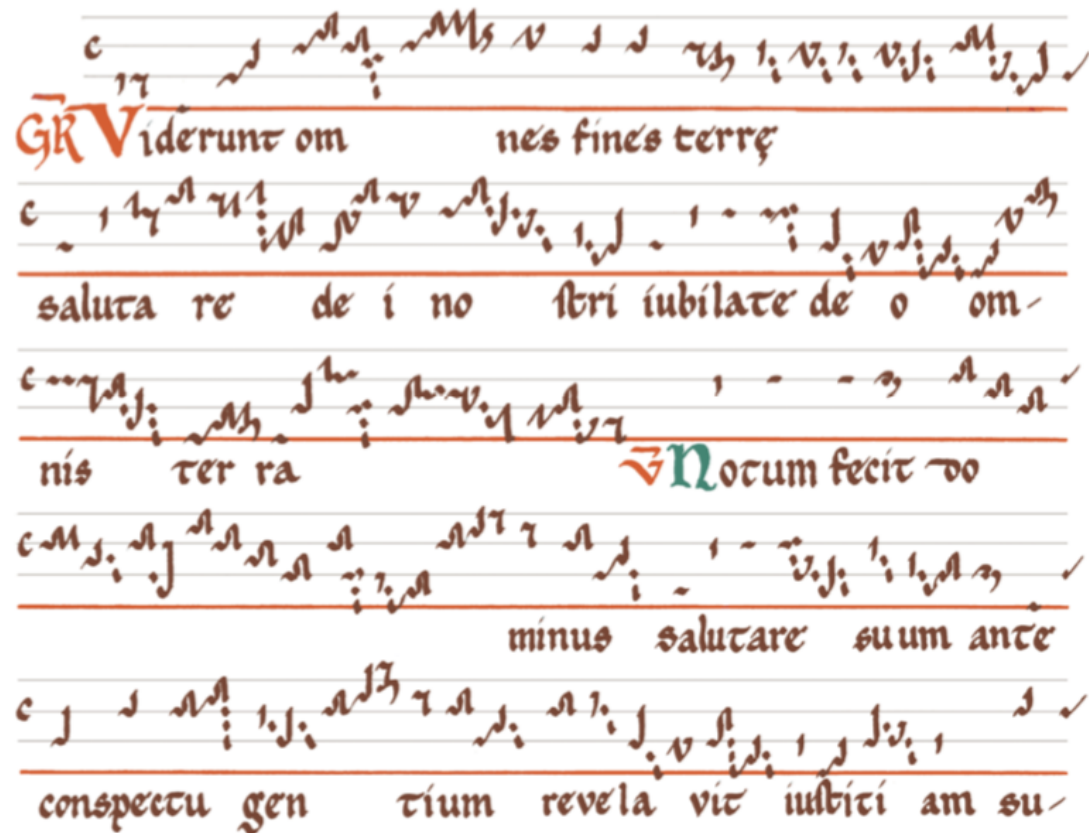 GR Viderunt om nes fines terrę
saluta re de i no stri iubilate de o om-
nis ter ra V Notum fecit do
minus salutare suum ante
conspectu gen tium revela vit iustiti am su-